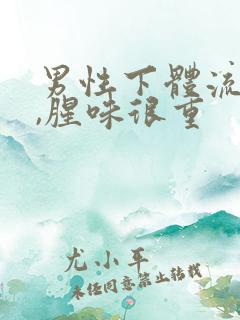 男性下體流
,腥味很重
尤小平
未经同意禁止转载